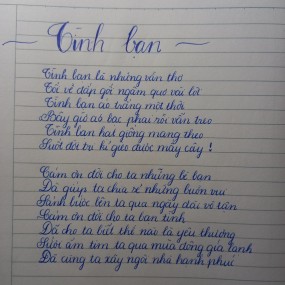 ~ Tình bạn ~
Tình bạn là những vần thơ
Tối về đắp gối ngâm quơ vài lời
Tình bạn áo trắng một thời
Máy gió áo bạc phai rồi vẫn treo
Tình bạn hạt giống mang theo
Suốt đời trụ kí gieo được mấy cây !
Cảm ơn đời cho ta những lẽ bạn
Đã giúp ta chia sẻ những buồn vui
Sánh bước lên ta qua ngày dài vô tận
Cảm ơn đời cho ta bạn tình
Đã cho ta biết thế nào là yêu thương
Sưởi ấm tim ta qua mùa đông giá lạnh
Đã cùng ta xây ngôi nhà hạnh phúc